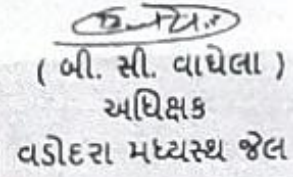 ( બી. સી. વાઘેલા )
અધિક્ષક
વડોદરા મધ્યસ્થ જેલ